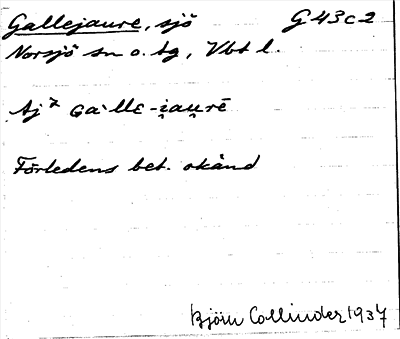 Gallejaure, sjö G 43 c 2
Norsjö sn o. tg, Vbt l.
Förledens bet. okänd
Björn Collinder 1937